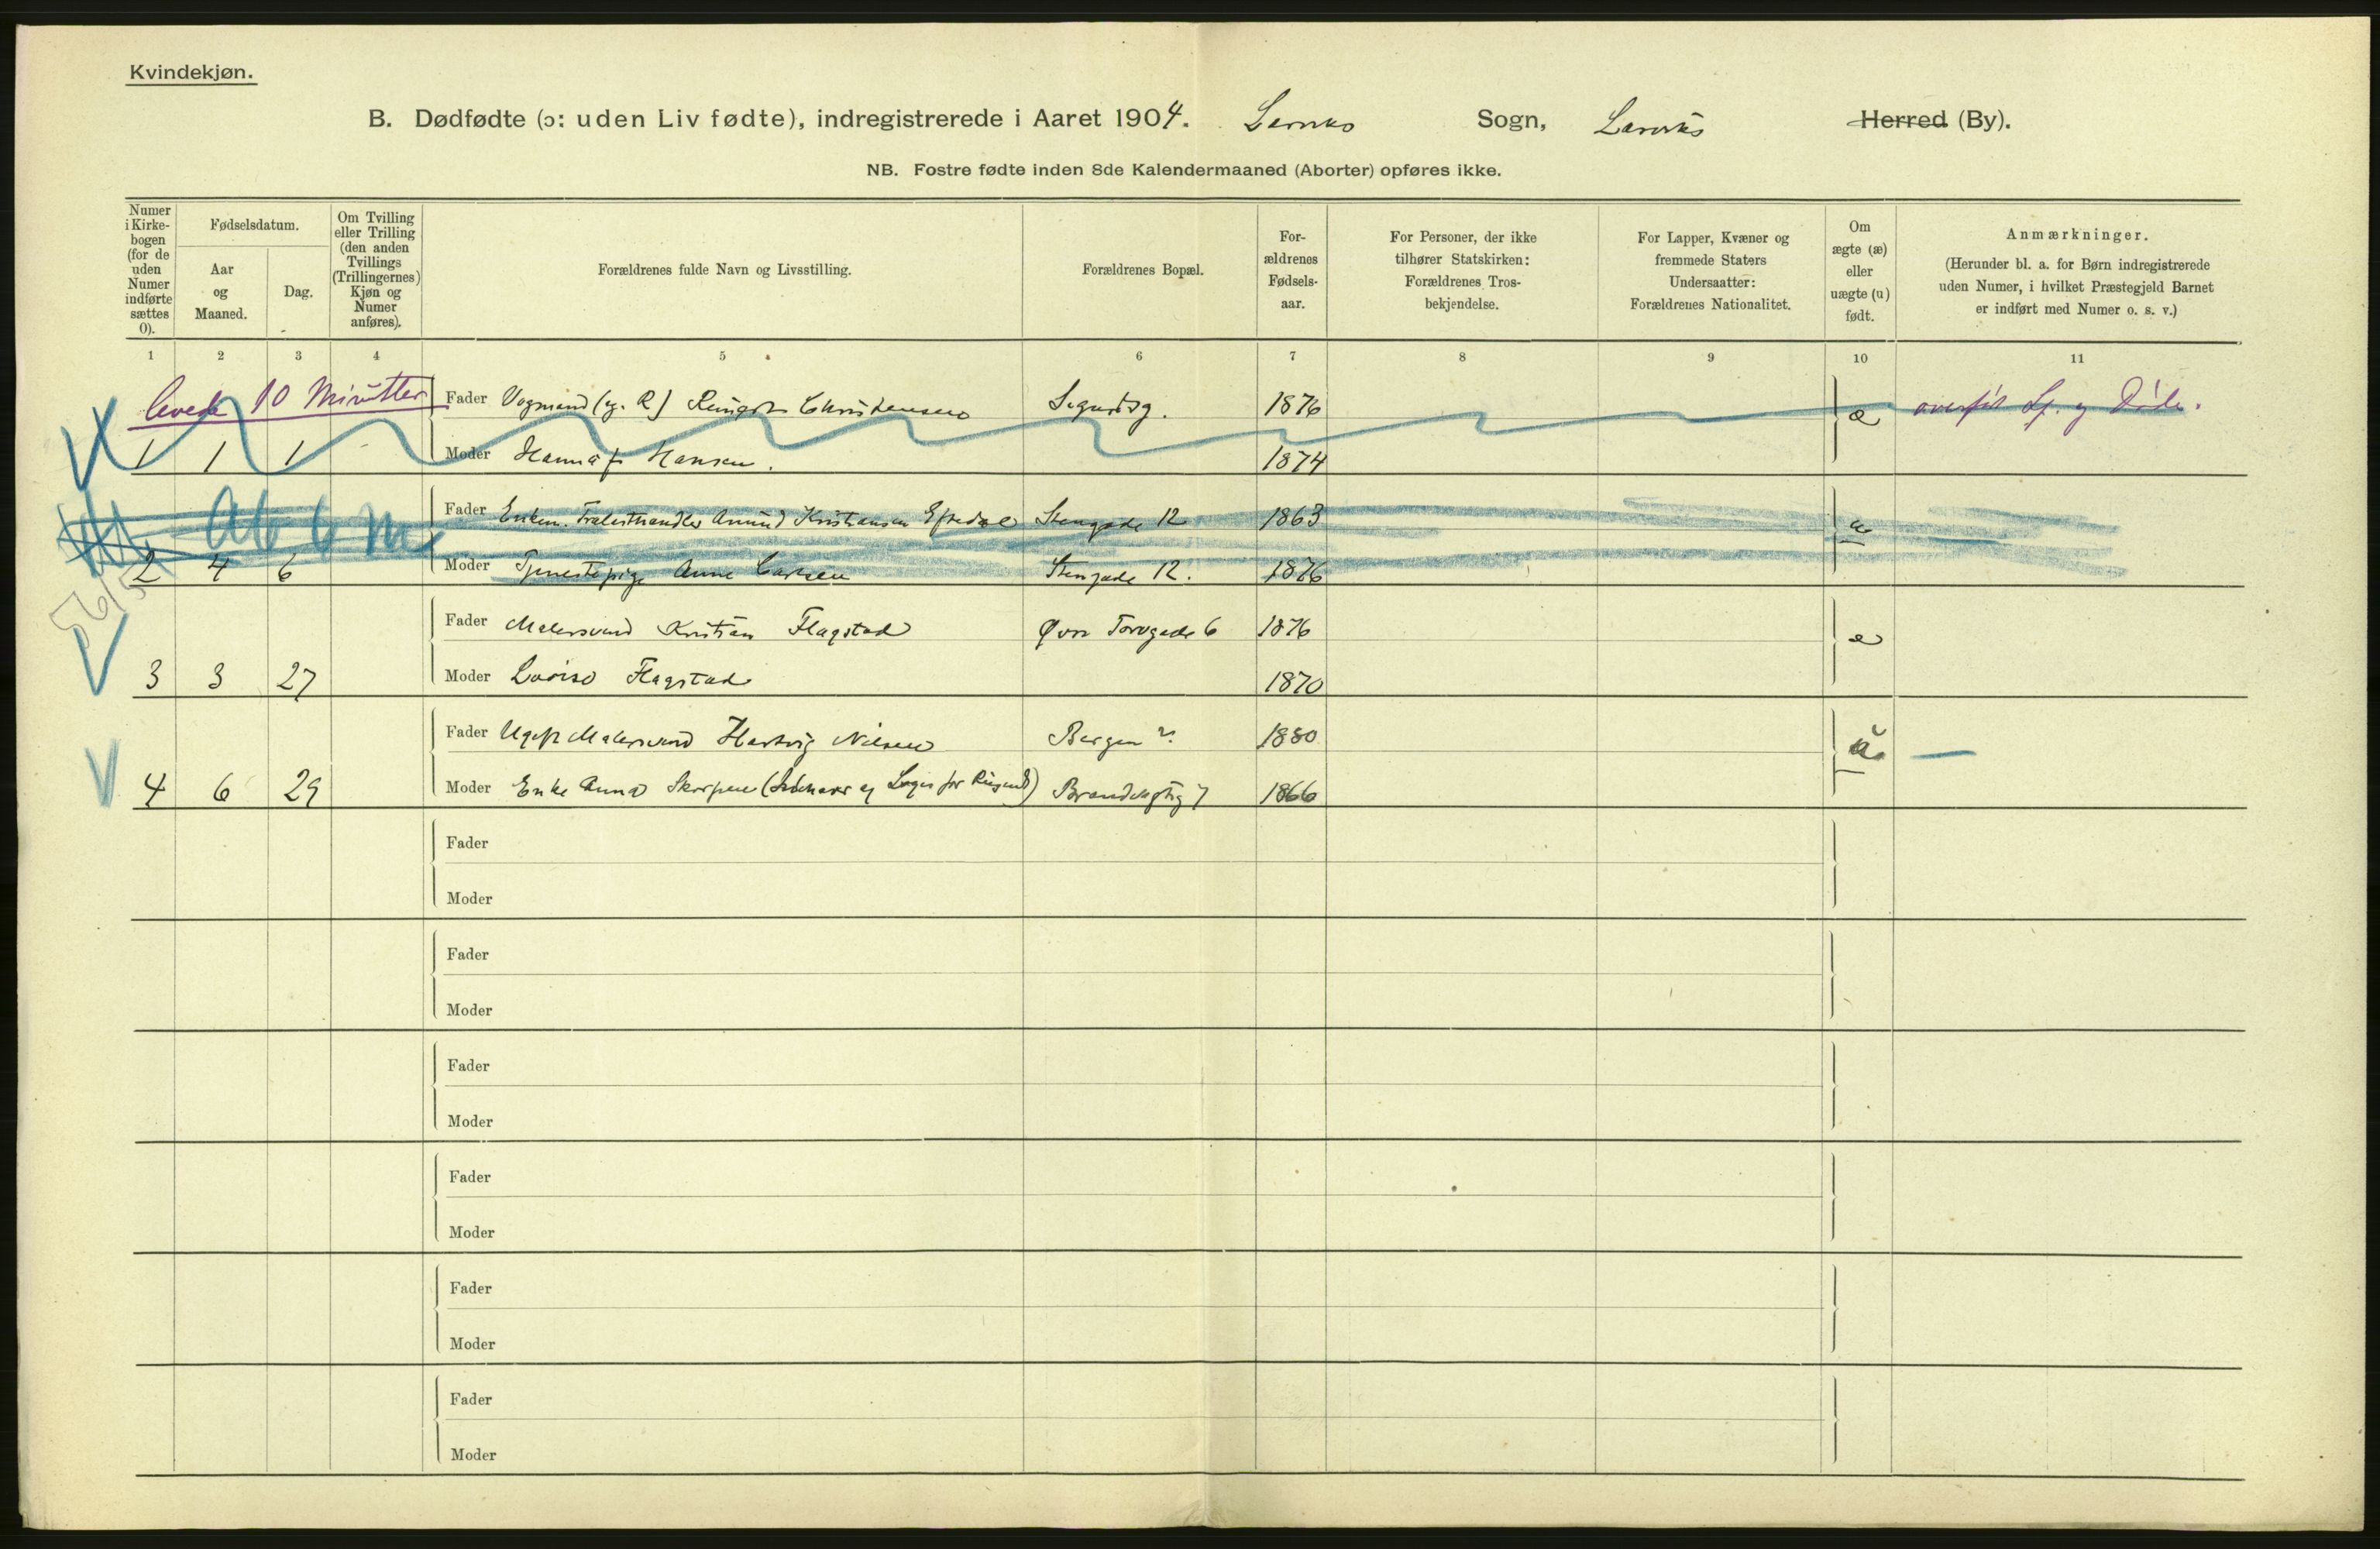 Kvindekjøn.
B. Dødfødte (ɔ: uden Liv fødte), indregistrerede i Aaret 1904. Larviks Sogn, Larviks Herred (By).
NB. Fostre fødte inden 8de Kalendermaaned (Aborter) opføres ikke.
Numer i Kirke-bogen (for de uden Numer indførte sættes 0).
Fødselsdatum.
Aar og Maaned.
Dag.
Om Tvilling eller Trilling (den anden Tvillings (Trillingernes) Kjøn og Numer anføres).
Forældrenes fulde Navn og Livsstilling.
Forældrenes Bopæl.
For-ældrenes Fødsels-aar.
For Personer, der ikke tilhører Statskirken: Forældrenes Tros-bekjendelse.
For Lapper, Kvæner og fremmede Staters Undersaatter: Forældrenes Nationalitet.
Om ægte (æ) eller uægte (u) født.
Anmærkninger.
(Herunder bl. a. for Børn indregistrerede uden Numer, i hvilket Præstegjeld Barnet er indført med Numer o. s. v.)
1 2 3 4 5 6 7 8 9 10 11
levede 10 Minutter
Fader Vognmand Christensen Sigurdsg. 1876 æ
1 1 1 Moder Hanna f. Hansen. 1874
Ab 6 M
Fader Enkem. Amund Kristiansen Stengade 12 1863 u
2 4 6 Moder Tjenestepige Anne Carlsen Stengade 12. 1876
Fader Malersvend Kristian Flagstad Øvre Torvgade 6 1876 æ
3 3 27 Moder Lovise Flagstad 1870
Fader Ugift Malersvend Hartvig Nilsen Bergen ?. 1880 u
4 6 29 Moder Enke Anna Skorpen 1866
Fader
Moder
Fader
Moder
Fader
Moder
Fader
Moder
Fader
Moder
Fader
Moder